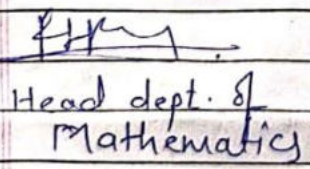 Head dept. of
Mathematics